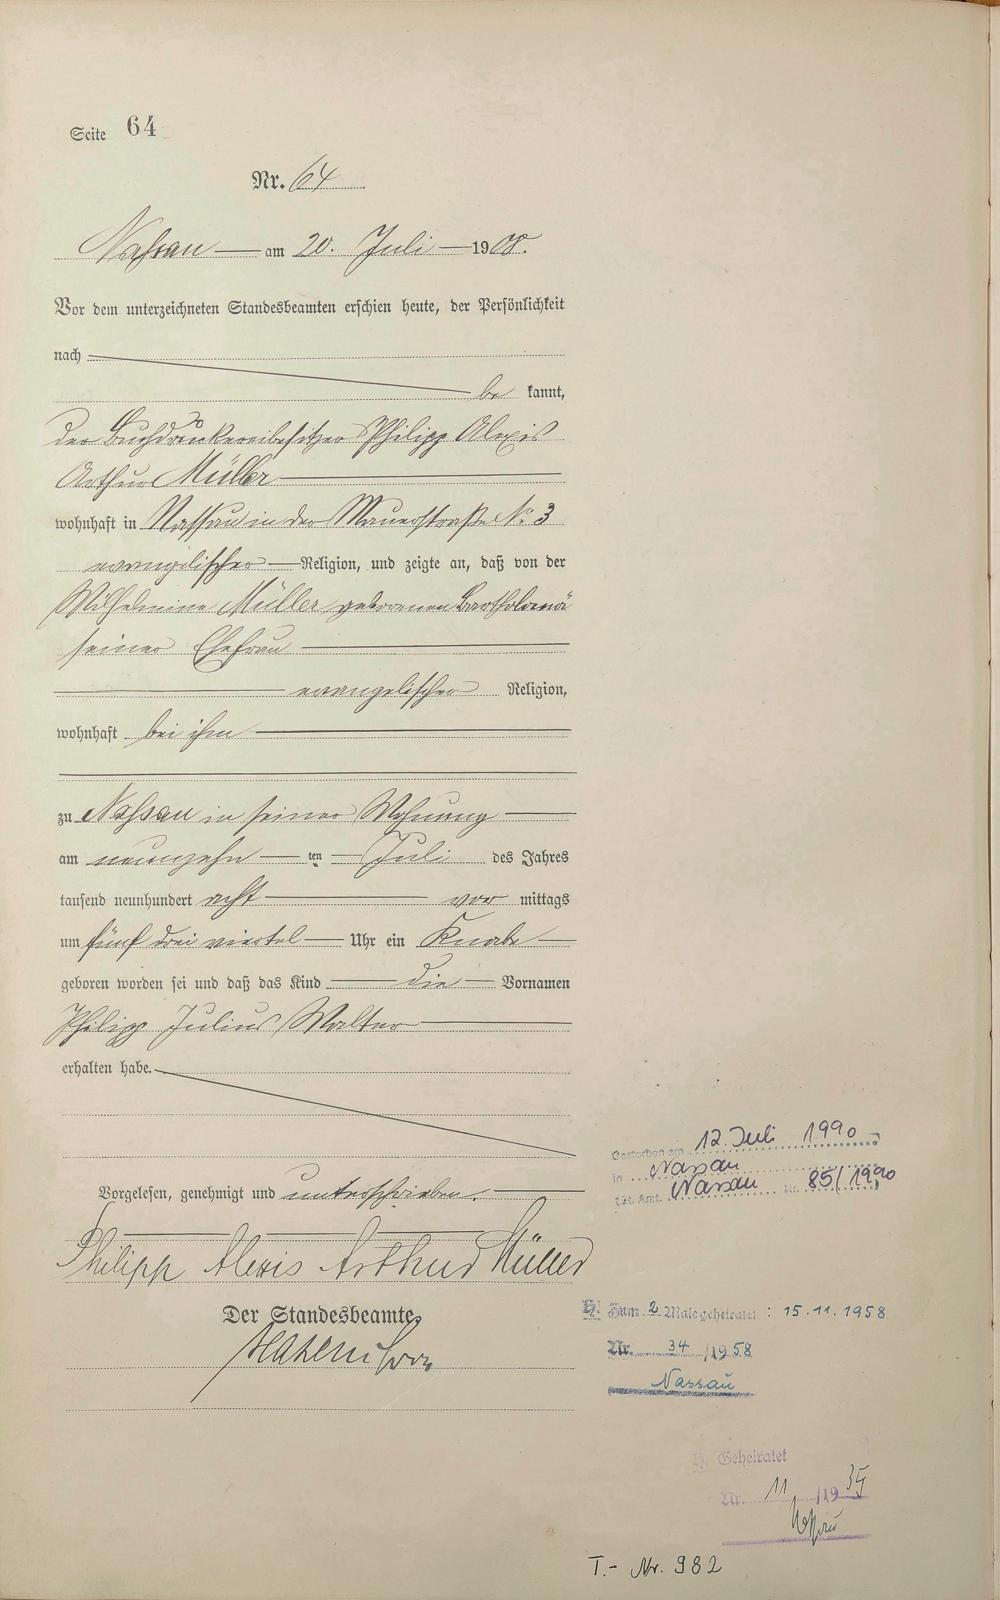 Seite 64
Nr. 64
Nassau am 20. Juli 1908.
Vor dem unterzeichneten Standesbeamten erschien heute, der Persönlichkeit
nach
be kannt,
der Buchdruckereibesitzer Philipp Alexis
Arthur Müller
wohnhaft in Nassau in der Mauerstraße No 3
evangelischer Religion, und zeigte an, daß von der
Wilhelmine Müller geborenen Bartholomä
seiner Ehefrau
evangelischer Religion,
wohnhaft bei ihm
zu Nassau in seiner Wohnung
am neunzehn ten Juli des Jahres
tausend neunhundert acht vor mittags
um fünf drei viertel Uhr ein Knabe
geboren worden sei und daß das Kind die Vornamen
Philipp Julius Walter
erhalten habe.
Vorgelesen, genehmigt und unterschrieben.
Philipp Alexis Arthur Müller
Der Standesbeamte,
Gestorben am 12. Juli 1990
in Nassau
(St. Amt. Nassau Nr. 85/1990
H. Zum 2. Male geheiratet: 15.11.1958
Nr. 34/1958
Nassau
H. Geheiratet
Nr. 11/1935
Nassau
T.- Nr. 982